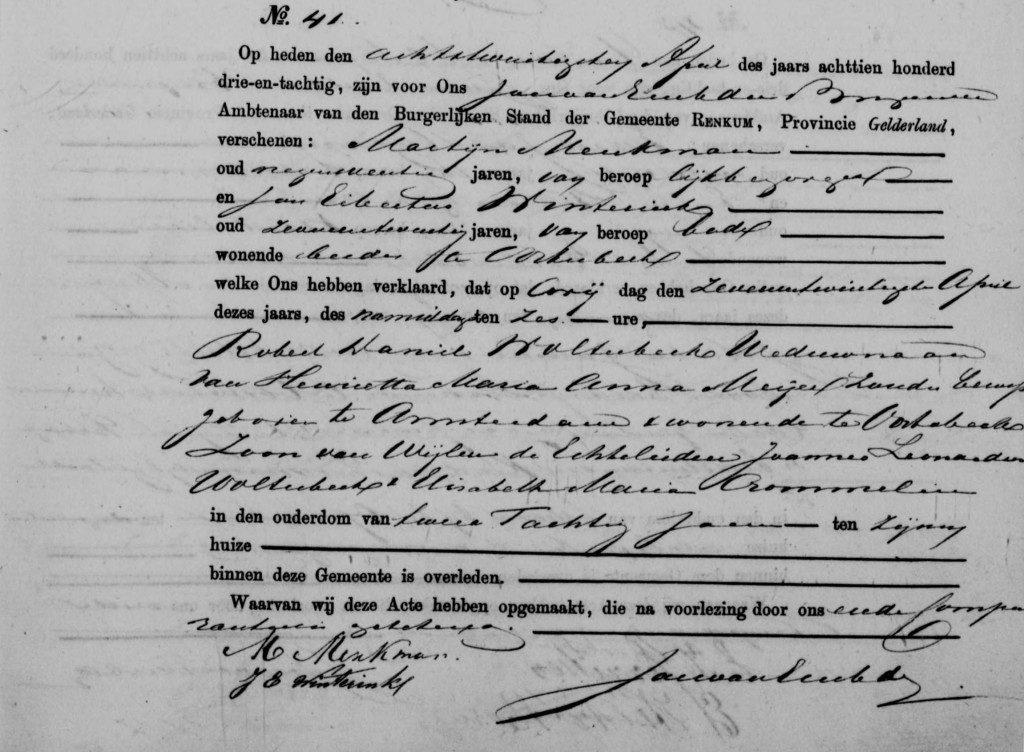 No. 41.
Op heden den achtstwintigsten April des jaars achttien honderd
drie-en-tachtig, zijn voor Ons Jan van Embden Burgemeester
Ambtenaar van den Burgerlijken Stand der Gemeente RENKUM, Provincie Gelderland,
verschenen: Martijn Menkman
oud jaren, van beroep lijkbezorger
en Jan Eibertus Winterink
oud zevenentwintig jaren, van beroep bode
wonende beiden te Oosterbeek
welke Ons hebben verklaard, dat op Vrij dag den zevenentwintigsten April
dezes jaars, des namiddags ten zes ure,
Robert Daniel Wolterbeek Weduwnaar
van Henrietta Maria Anna Meijer zonder beroep
geboren te Amsterdam & wonende te Oosterbeek
Zoon van Wijlen de Echtelieden Joannes Leonardus
Wolterbeek & Elisabeth Maria Crommelin
in den ouderdom van twee Tachtig Jaren ten zijnen
huize
binnen deze Gemeente is overleden.
Waarvan wij deze Acte hebben opgemaakt, die na voorlezing door ons ende Compa
ranten is geteekend.
M Menkman.
J E Winterink
Jan van Embden